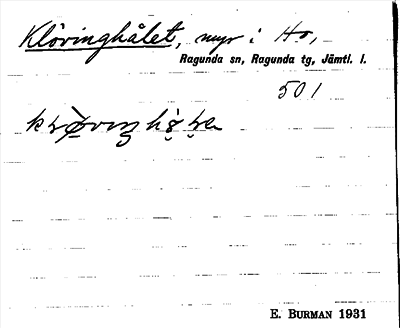 Klövinghålet, myr i Ho,
Ragunda sn, Ragunda tg, Jämtl. l.
501
E. BURMAN 1931